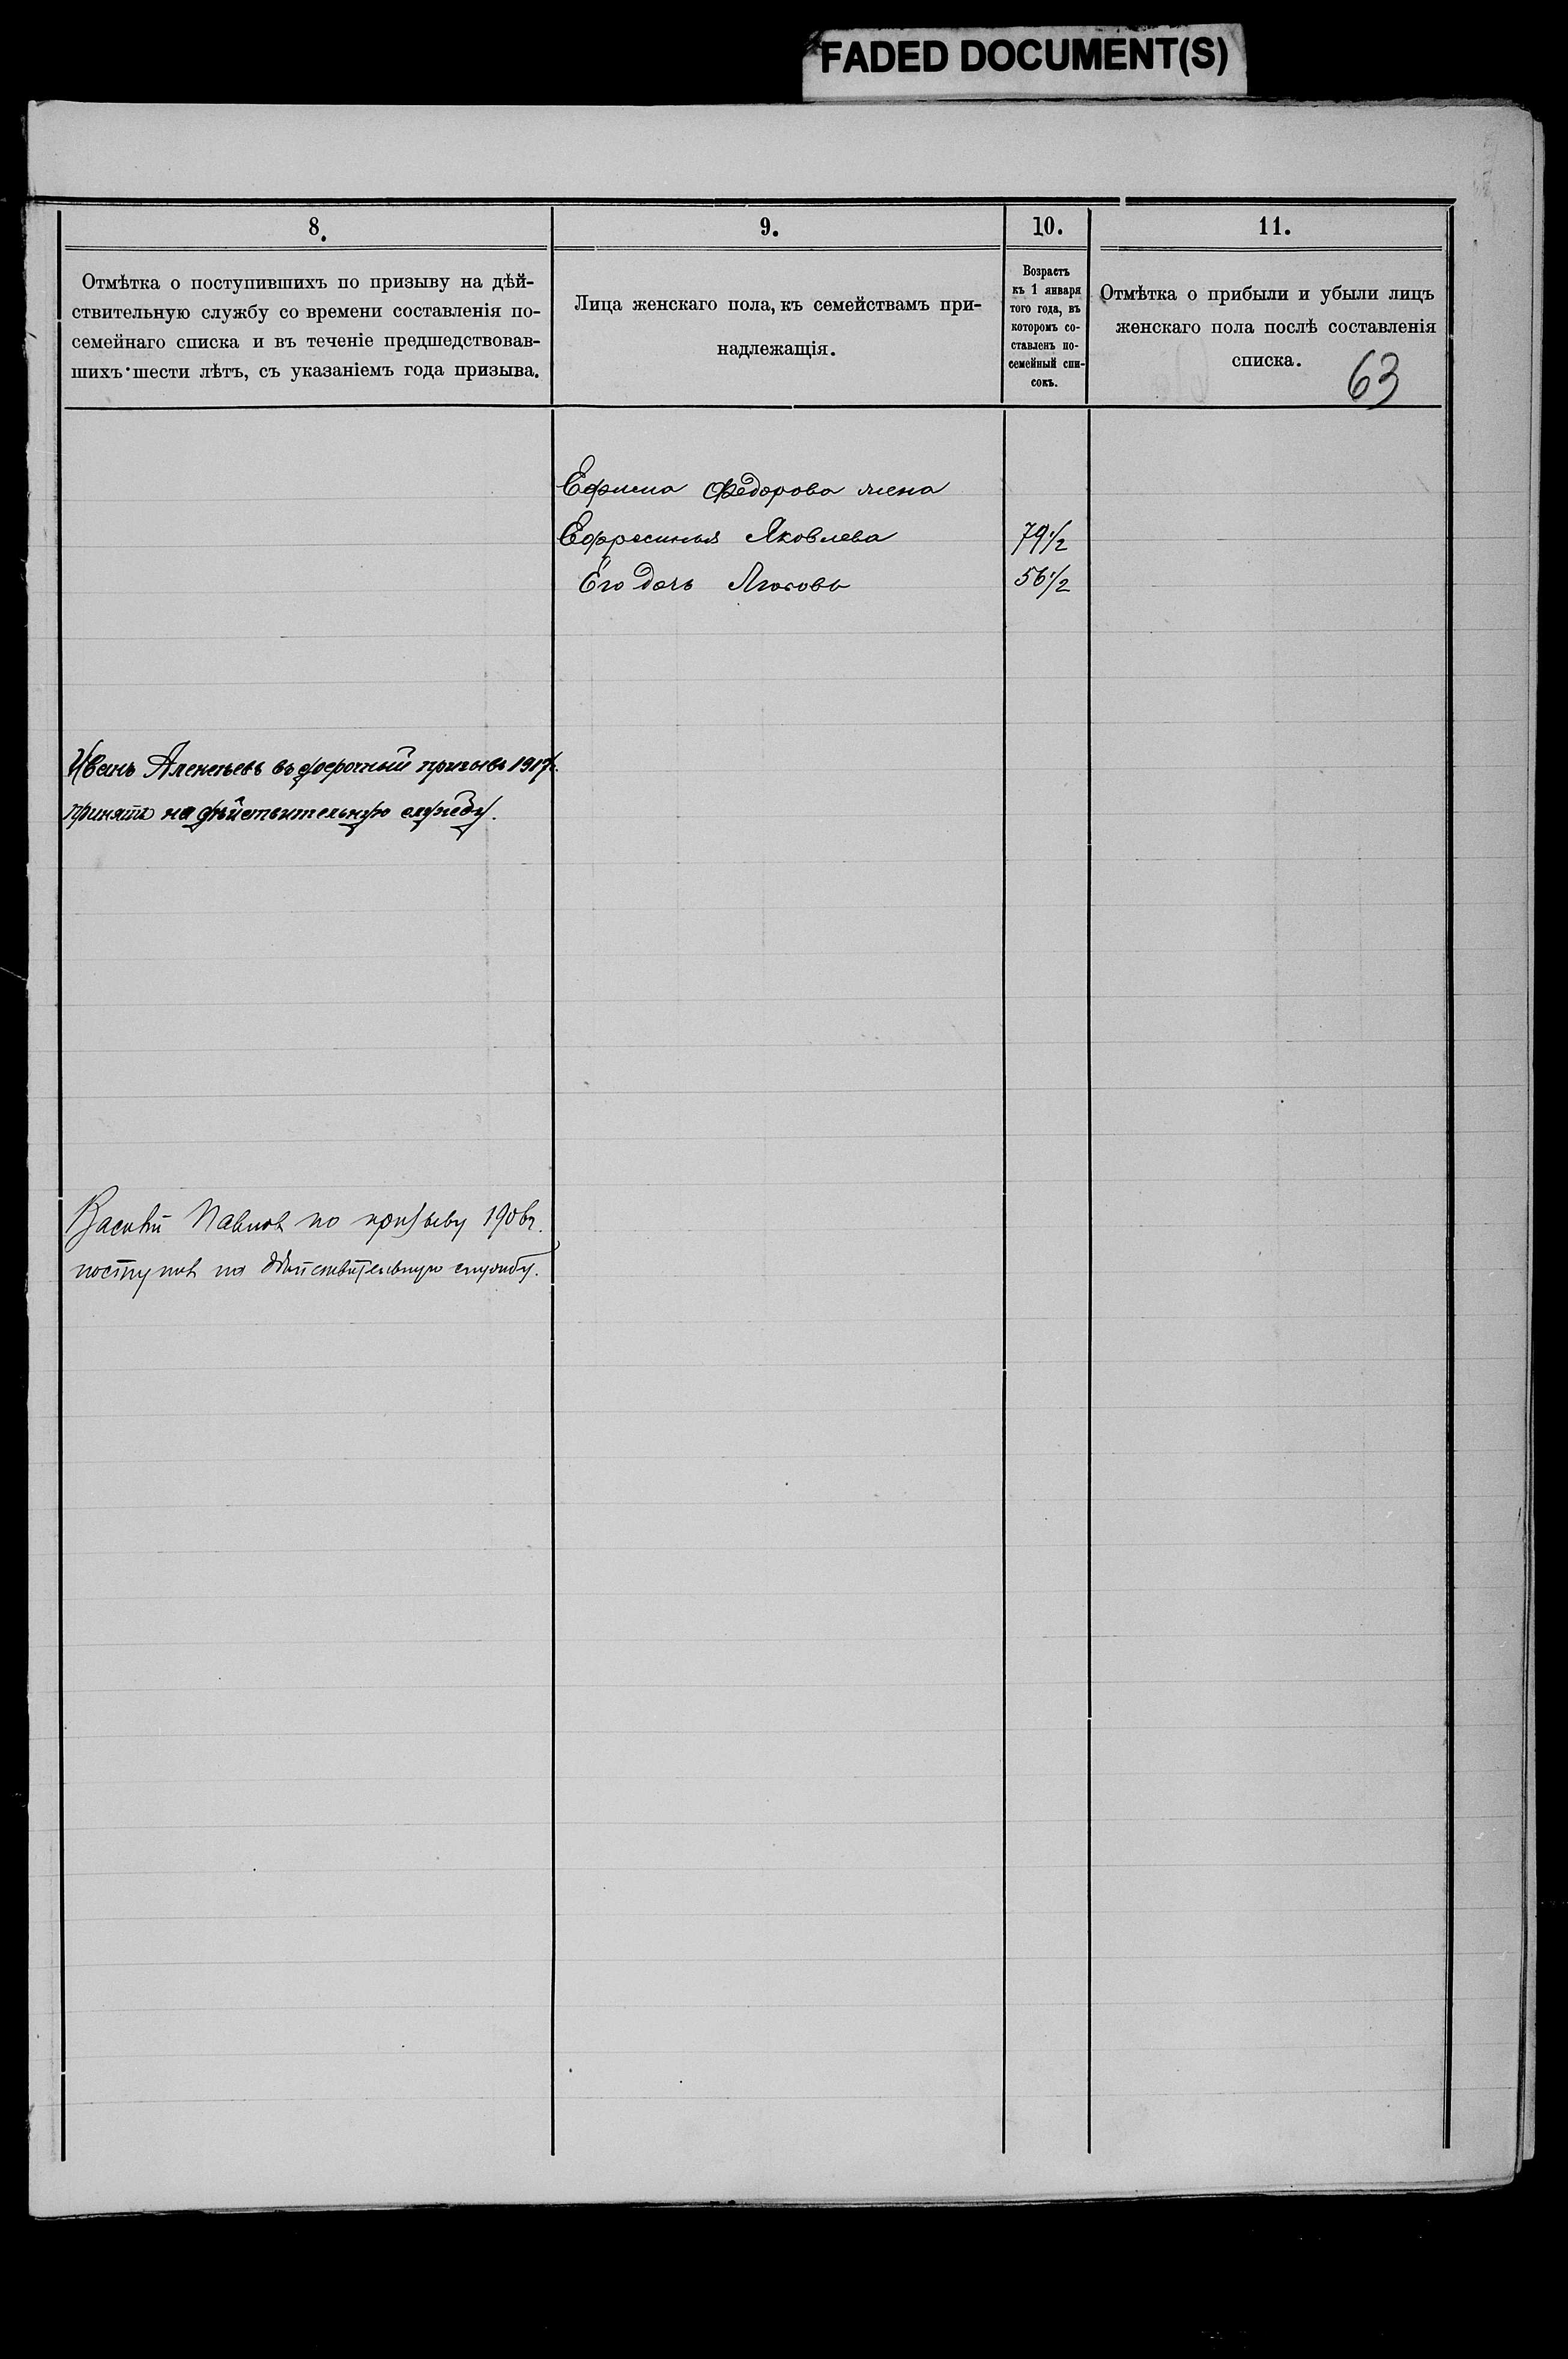 FADED DOCUMENT(S)
8.
Отмѣтка о поступившихъ по призыву на дѣй-
ствительную службу со времени составленія по-
семейнаго списка и въ теченіе предшедствовав-
шихъ шести лѣтъ, съ указаніемъ года призыва.
9.
Лица женскаго пола, къ семействамъ при-
надлежащія.
10.
Возрастъ
къ 1 января
того года, въ
которомъ со-
ставленъ по-
семейный спи-
сокъ.
11.
Отмѣтка о прибыли и убыли лицъ
женскаго пола послѣ составленія
списка.
63
Ефима Федорова жена
Ефросинья Яковлева 79 1/2
Его дочь Любовь 56 1/2
Иванъ Алексѣевъ въ досрочный призывъ 1917г.
принятъ на дѣйствительную службу.
Василій Павловъ по призыву 1906г.
поступилъ на дѣйствительную службу.